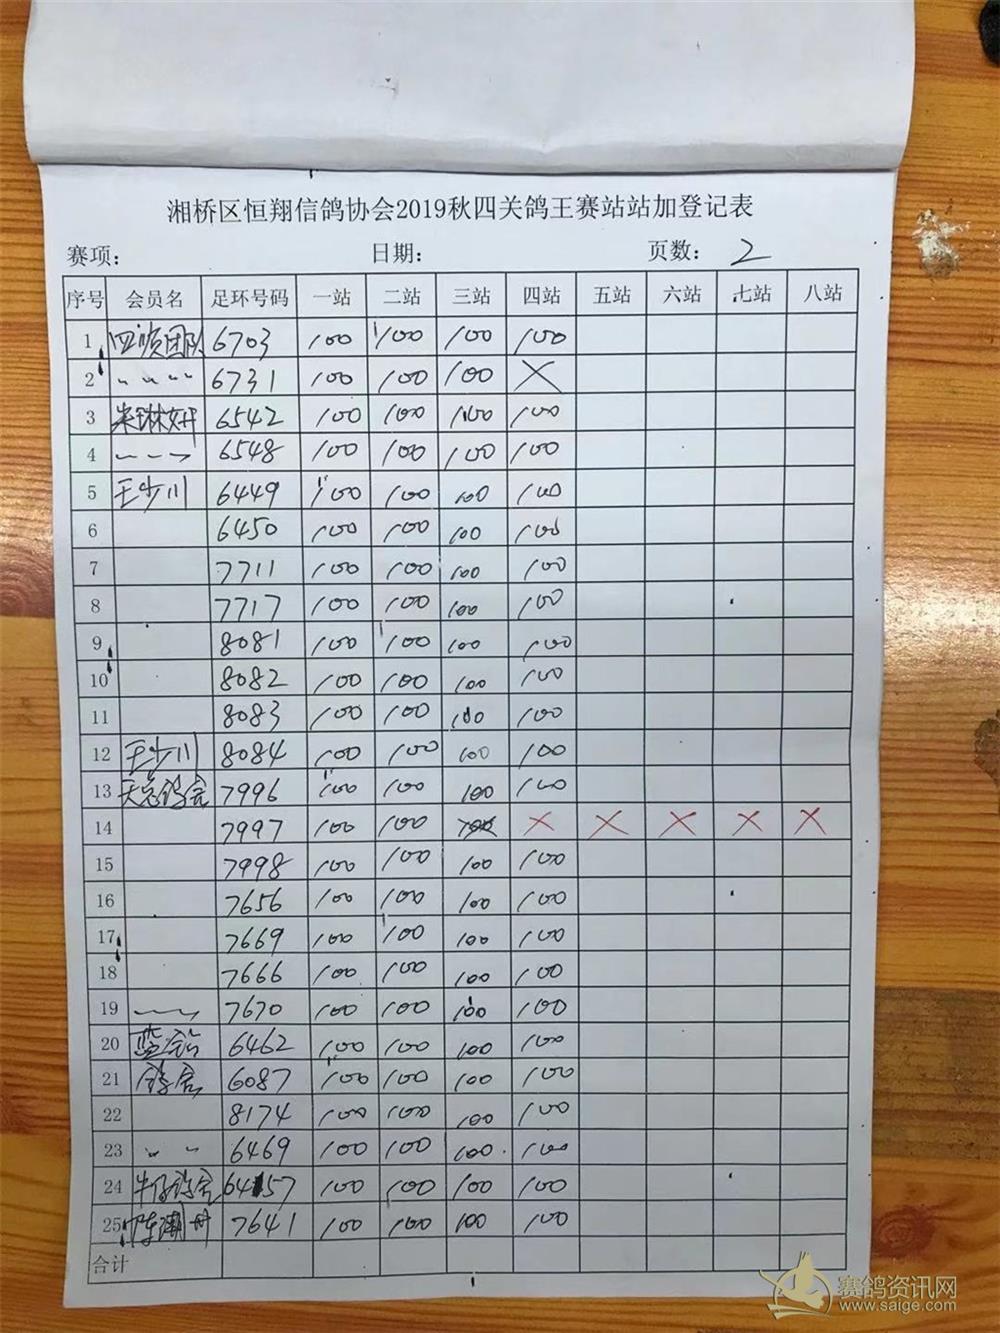 湘桥区恒翔信鸽协会2019秋四关鸽王赛站站加登记表
赛项： 日期： 页数： 2
序号 会员名 足环号码 一站 二站 三站 四站 五站 六站 七站 八站
1 四顺团队 6703 100 100 100 100
2 〃 〃 〃 6731 100 100 100 ×
3 朱琳妍 6542 100 100 100 100
4 6548 100 100 100 100
5 王少川 6449 100 100 100 100
6 6450 100 100 100 100
7 7711 100 100 100 100
8 7717 100 100 100 100
9 8081 100 100 100 100
10 8082 100 100 100 100
11 8083 100 100 100 100
12 王少川 8084 100 100 100 100
13 鸽舍 7996 100 100 100 100
14 7997 100 100 100 × × × × ×
15 7998 100 100 100 100
16 7656 100 100 100 100
17 7669 100 100 100 100
18 7666 100 100 100 100
19 7670 100 100 100 100
20 蓝钻 6462 100 100 100 100
21 鸽舍 6087 100 100 100 100
22 8174 100 100 100 100
23 〃 〃 6469 100 100 100 100
24 牛仔鸽舍 6457 100 100 100 100
25 陈潮丹 7641 100 100 100 100
合计
赛鸽资讯网
www.saige.com